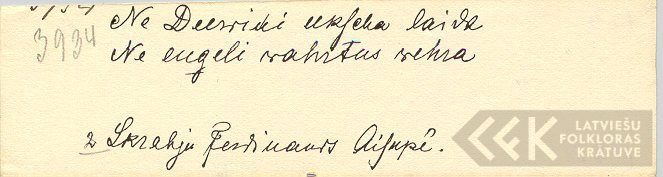 3934
Ne Deewiņi ukscha laida
Ne engeli wahrtus wehra
2 Skrabju Ferdinands Aisupē.
LATVIEŠU
FOLKLORAS
KRĀTUVE